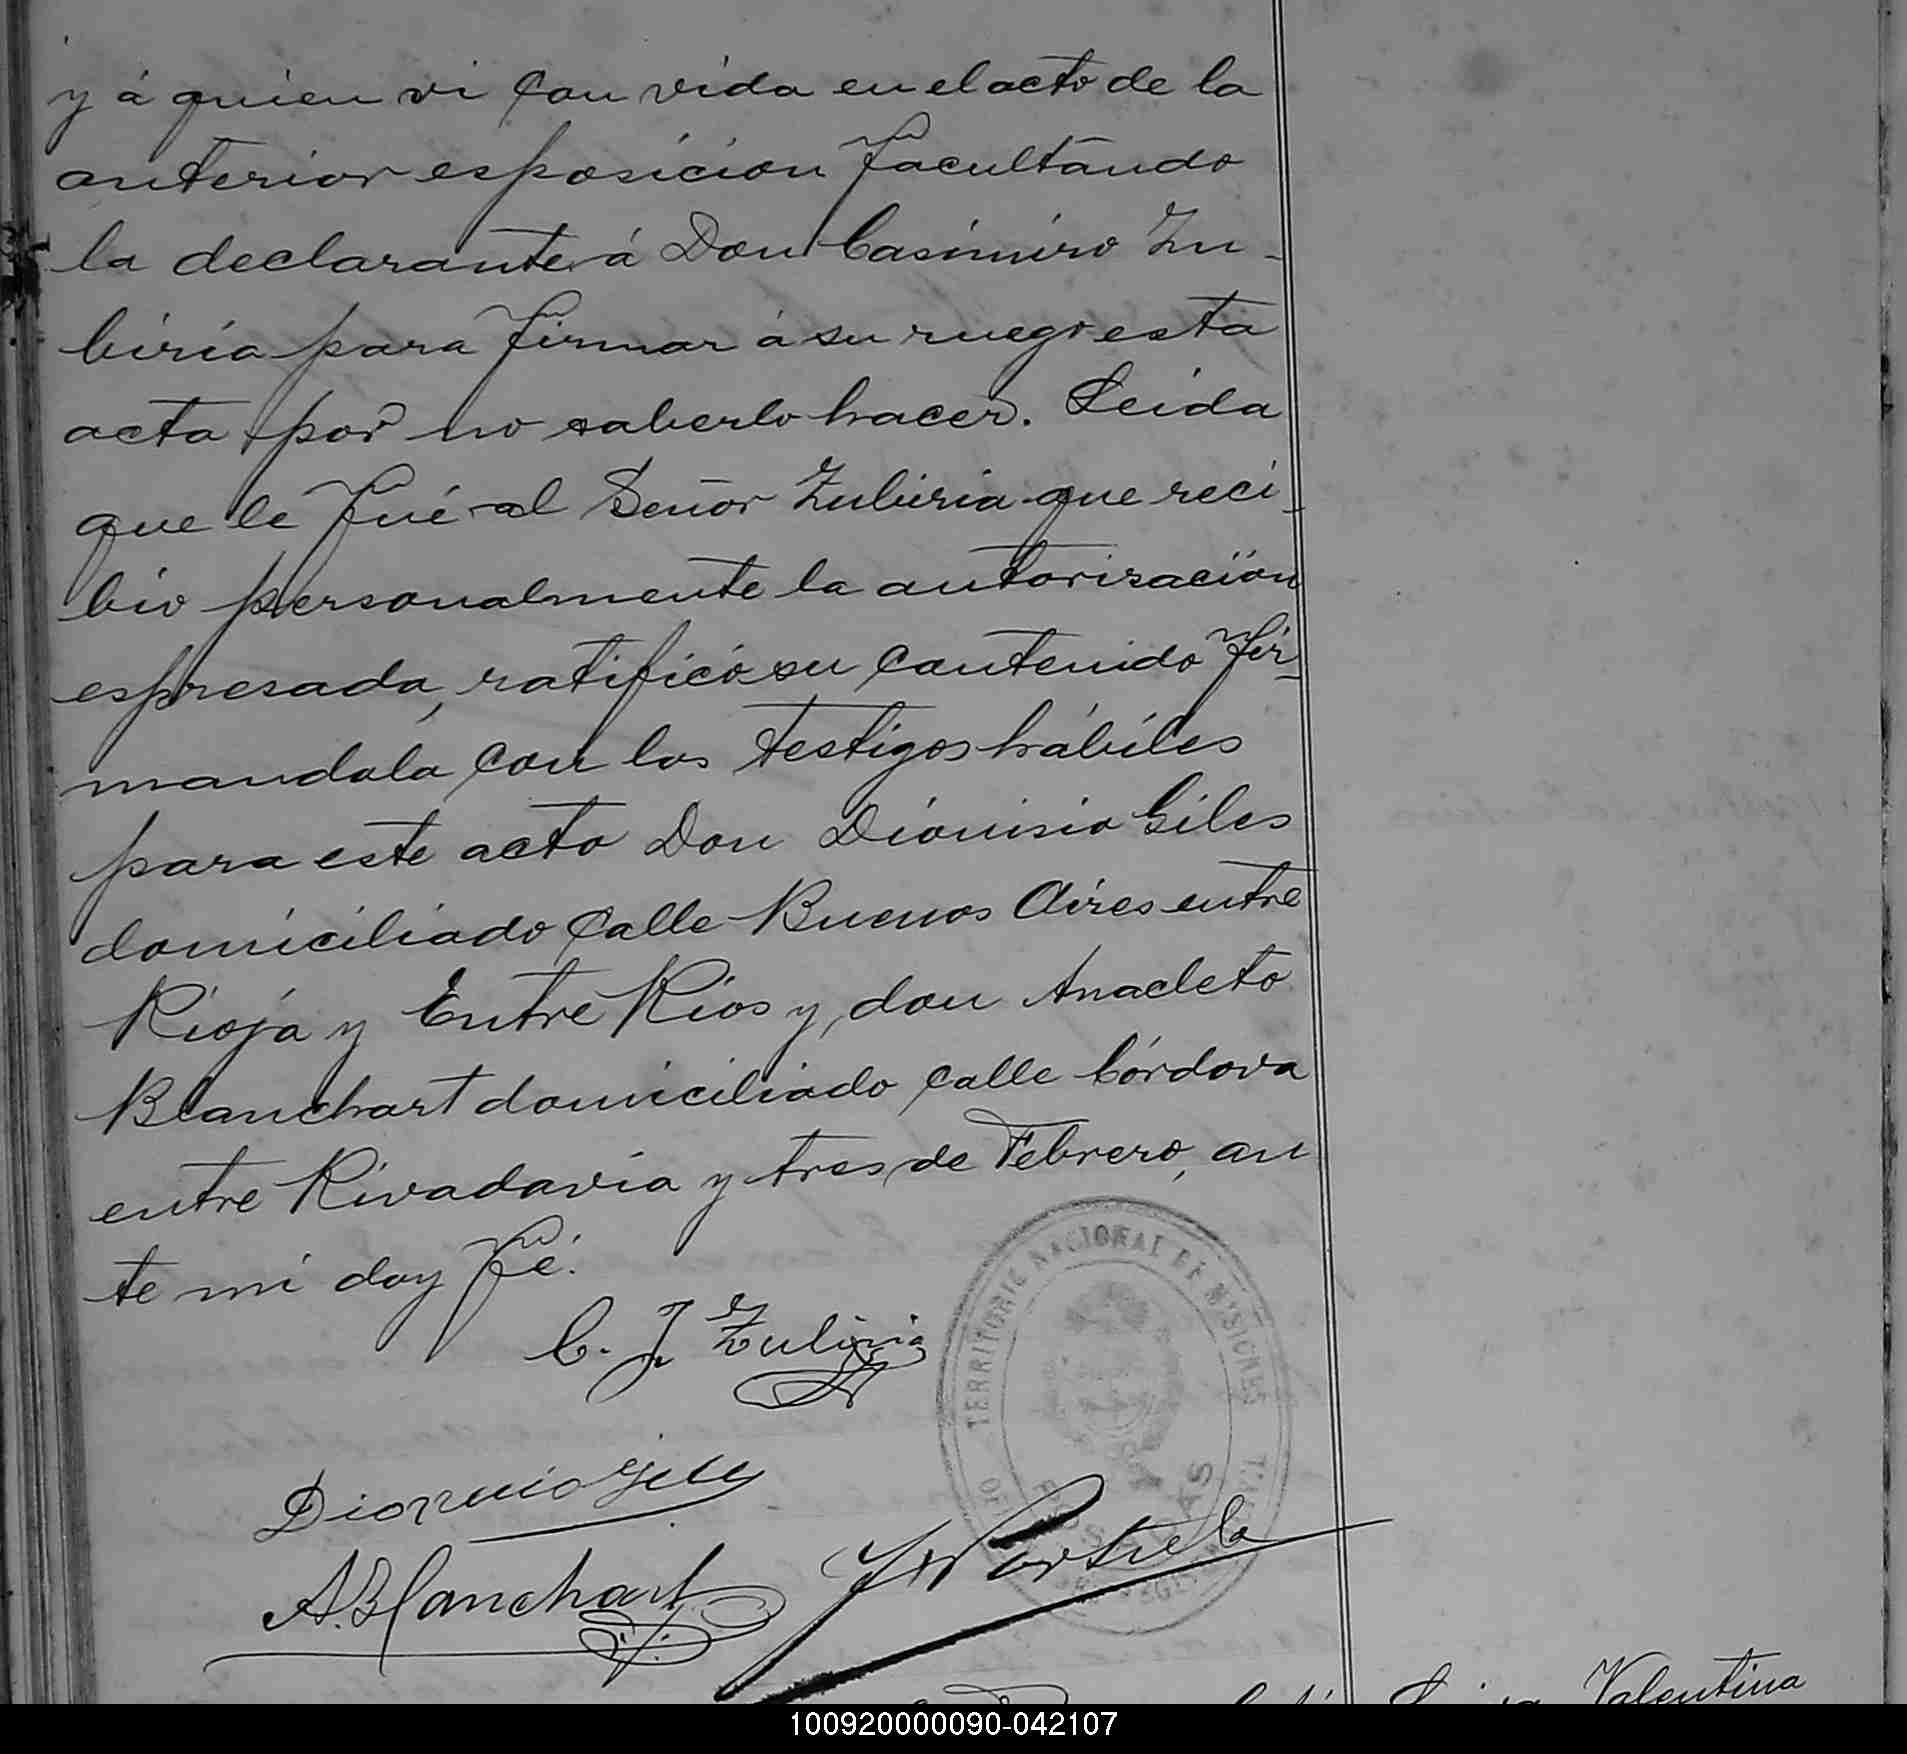 y á quien vi con vida en el acto de la
anterior esposicion facultando
la declarante á Don Casimiro Zu-
biria para firmar á su ruego esta
acta por no saberlo hacer. Leida
que le fué al Señor Zubiria que reci-
bio personalmente la autorizacion
espresada, ratificó su contenido fir-
mandola con los testigos hábiles
para este acto Don Dionisio Giles
domiciliado calle Buenos Aires entre
Rioja y Entre Rios y don Anacleto
Blanchart domiciliado calle Córdova
entre Rivadavia y tres de Febrero, an
te mi doy fé.
C. J. Zubiria
TERRITORIO NACIONAL DE MISIONES
POSADAS
Dionisio Giles
A. Blanchart
Portiela
Valentina
100920000090-042107